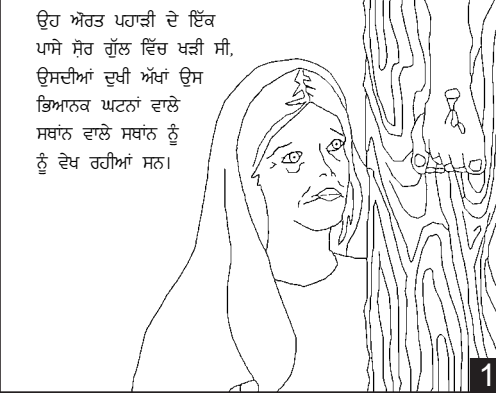 ਉਹ ਔਰਤ ਪਹਾੜੀ ਦੇ ਇੱਕ
ਪਾਸੇ ਸ਼ੋਰ ਗੁੱਲ ਵਿੱਚ ਖੜੀ ਸੀ,
ਉਸਦੀਆਂ ਦੁਖੀ ਅੱਖਾਂ ਉਸ
ਭਿਆਨਕ ਘਟਨਾਂ ਵਾਲੇ
ਸਥਾਂਨ ਵਾਲੇ ਸਥਾਂਨ ਨੂੰ
ਨੂੰ ਵੇਖ ਰਹੀਆਂ ਸਨ।
1